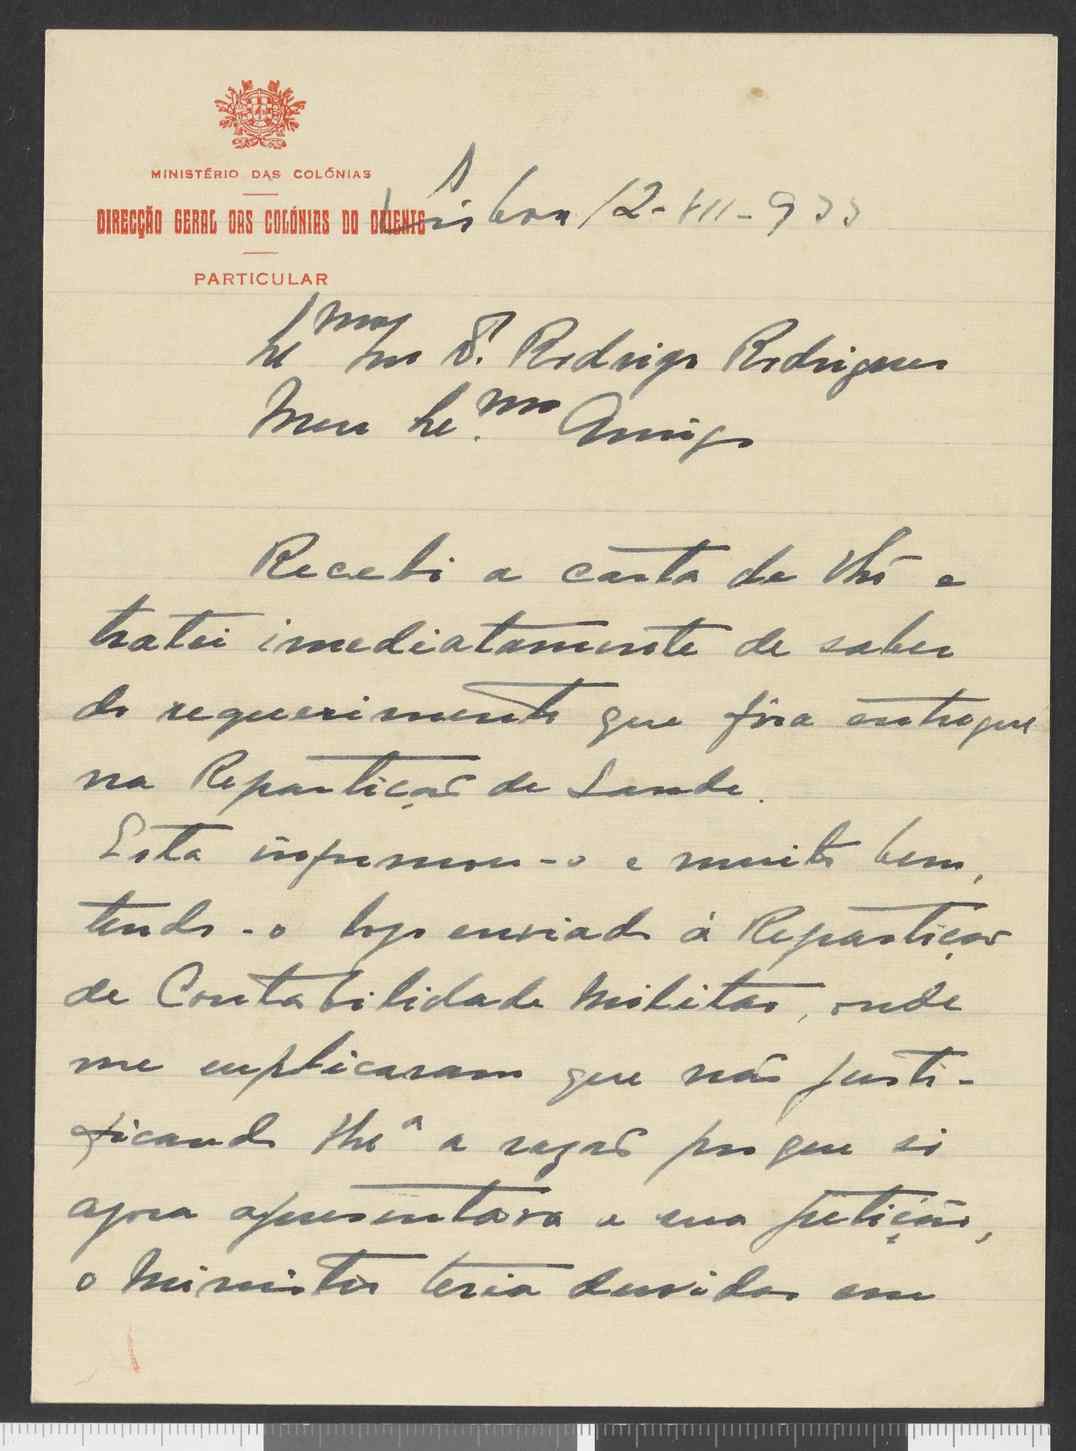 MINISTÉRIO DAS COLÓNIAS
DIRECÇÃO GERAL DAS COLÓNIAS DO ORIENTE
PARTICULAR
Lisboa 12-VII-933
Dr. Rodrigo Rodrigues
Meu Amigo
Recebi a carta de e
tratei imediatamente de saber
do requerimento que fôra entregue
na Repartição de Saude.
Esta informou-o e muito bem,
tendo-o logo enviado á Repartição
de Contabilidade Militar, onde
me explicaram que não justi-
ficando a razão porque só
agora apresentava a sua petição,
o Ministro teria duvidas em